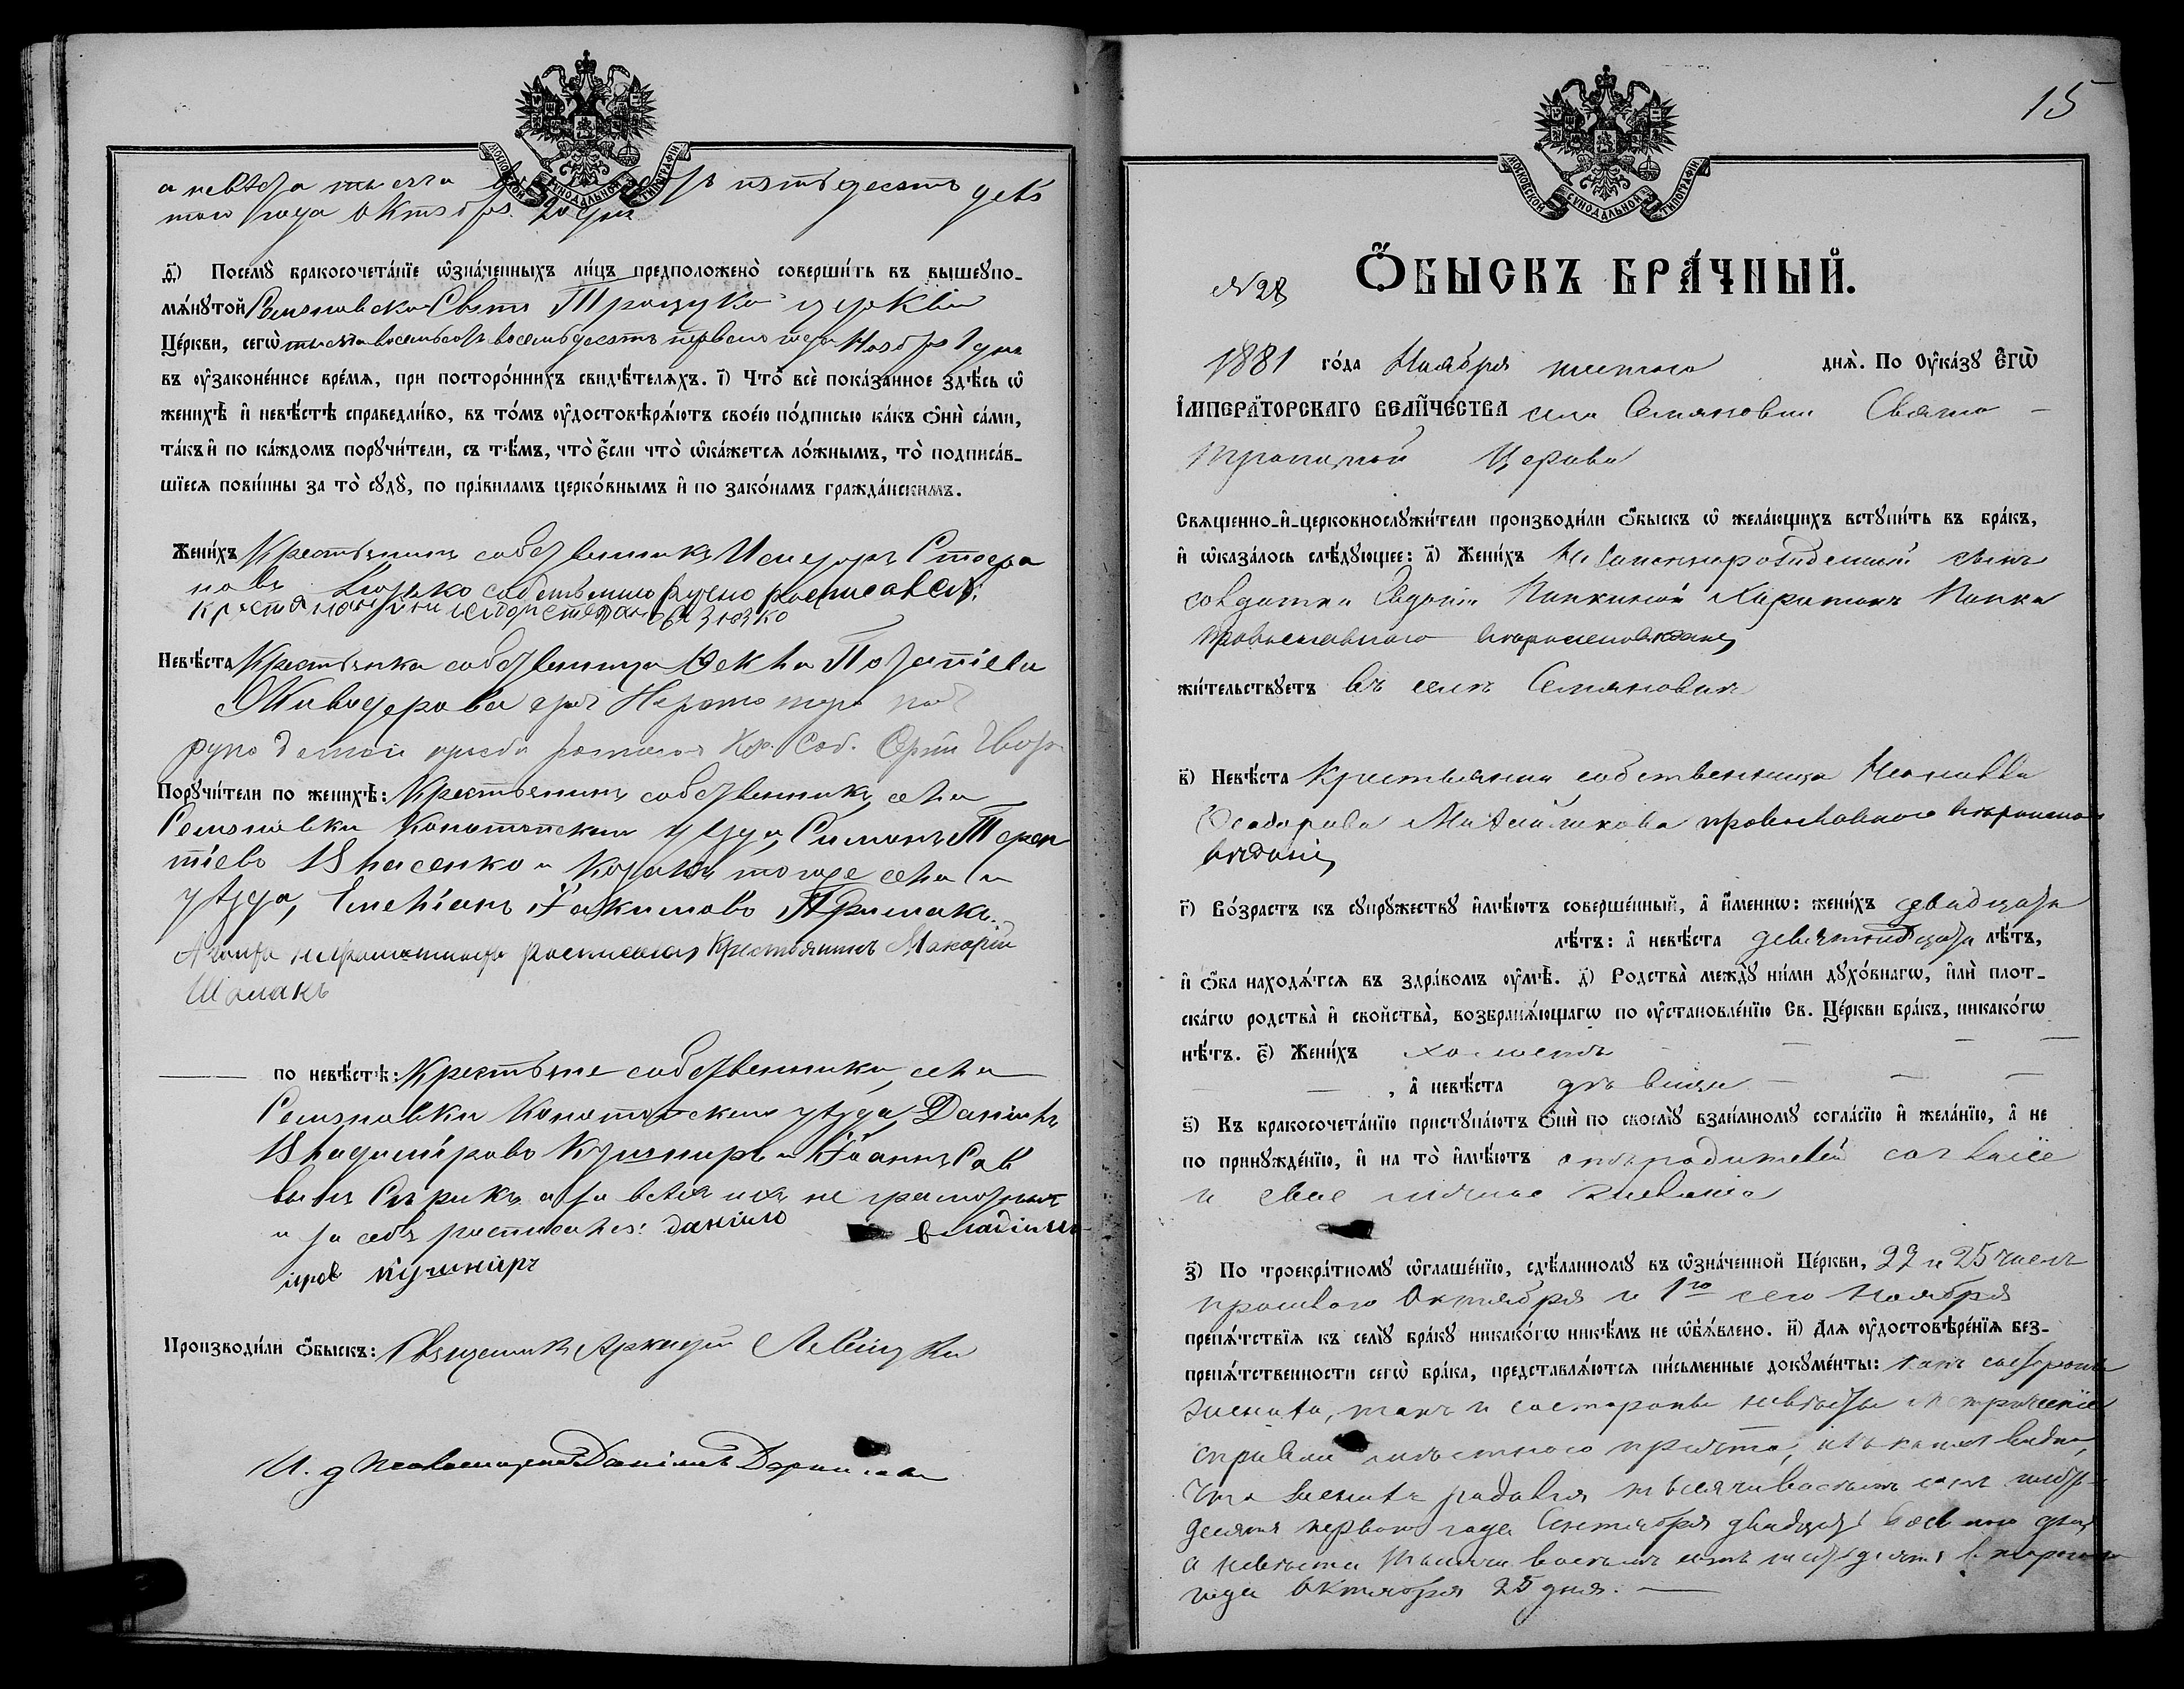 а невѣста тысяча пятьдесятъ девя
таго года Октября 20 дня
МОСКОВСКОЙ СѴНОДАЛЬНОЙ ТИПОГРАФІИ
д҃) Посемꙋ̀ бракосочета́нїе ѡ҆зна́ченныхъ ли́цъ предположено̀ соверши́ть въ вышеꙋпо-
мѧ́нꙋтой Семяновской Свято Троицкой церкви
Це́ркви, сегѡ̀ тысяча восемьсотъ восемьдесятъ перваго года Ноября 1 дня
въ ᲂу҆законе́нное вре́мѧ, при посторо́ннихъ свидѣ́телѧхъ. і҃) Что̀ всѐ пока́занное здѣ́сь ѡ҆
женихѣ̀ и҆ невѣ́стѣ справедли́во, въ то́мъ ᲂу҆достовѣрѧ́ютъ свое́ю по́дписью ка́къ ѻ҆нѝ са́ми,
та́къ и҆ по ка́ждомъ порꙋчи́тели, съ тѣ́мъ, что̀ є҆́сли что̀ ѡ҆ка́жетсѧ ло́жнымъ, то̀ подписа́в-
шїесѧ пови́нны за то̀ сꙋдꙋ̀, по пра́виламъ церко́внымъ и҆ по зако́намъ гражда́нскимъ.
Жени́хъ Крестьянинъ собственникъ Исидоръ Стефа
новъ собственноручно росписался.
Невѣ́ста Крестьянка собственница Ѳекла Потапіева
Живодерова а за Неграмотную по
рукоданной просьбѣ росписался Кр. Соб.
Порꙋчи́тели по женихѣ̀: Крестьянинъ собственникъ села
Семяновки Конотопскаго уѣзда, Симонъ Терен
тіевъ Власенко и Козакъ того же села и
уѣзда, Емеліанъ Іакимовъ Примакъ.
А за нихъ неграмотныхъ росписался Крестьянинъ Макарій
Шамакъ
по невѣ́стѣ: Крестьяне собственники, села
Семяновки Конотопскаго уѣзда, Даніилъ
Владиміровъ Кушниръ и Іоаннъ Сав
винъ Сѣрикъ а за всѣхъ ихъ не грамотныхъ
и за себя росписался: Даніило Владими
іров Кушниръ
Производи́ли ѻ҆́быскъ: Священникъ Аркадій Левицкій
И. д. Псаломщика Даніилъ
15
МОСКОВСКОЙ СѴНОДАЛЬНОЙ ТИПОГРАФІИ
№ 28
Ѻ҆́БЫСКЪ БРА́ЧНЫЙ.
1881 го́да Ноября шестаго днѧ̀. По Оу҆ка́зꙋ Є҆гѡ̀
І҆мпера́торскаго Вели́чества села Семяновки Свято-
Троицкой Церкви
Свѧщенно-и҆-церковнослꙋжи́тели производи́ли ѻ҆́быскъ ѡ҆ жела́ющихъ встꙋпи́ть въ бра́къ,
и҆ ѡ҆каза́лось слѣ́дꙋющее: а҃) Жени́хъ Незаконнорожденный сынъ
солдатки Папкиной Харитонъ Папка
православнаго вѣроисповѣданія
жи́тельствꙋетъ въ селѣ Семяновкѣ
в҃) Невѣ́ста Крестьянка собственница
Ѳеодорова православнаго вѣроиспо
вѣданія
г҃) Во́зрастъ къ сꙋпрꙋ́жествꙋ и҆мѣ́ютъ соверше́нный, а҆ и҆́меннѡ: жени́хъ двадцать
лѣ́тъ: а҆ невѣ́ста девятнадцать лѣ́тъ,
и҆ ѻ҆́ба нахо́дѧтсѧ въ здра́вомъ ᲂу҆мѣ̀. д҃) Родства̀ междꙋ̀ ни́ми дꙋхо́внагѡ, и҆лѝ плот-
ска́гѡ родства̀ и҆ свойства̀, возбранѧ́ющагѡ по ᲂу҆становле́нїю Св. Це́ркви бра́къ, никако́гѡ
нѣ́тъ. є҃) Жени́хъ холостъ — —
— — , а҆ невѣ́ста дѣвица — —
ѕ҃) Къ бракосочета́нїю пристꙋпа́ютъ ѻ҆нѝ по своемꙋ̀ взаи́мномꙋ согла́сїю и҆ жела́нїю, а҆ не
по принꙋжде́нїю, и҆ на то̀ и҆мѣ́ютъ отъ родителей согласіе
и свое личное желаніе
з҃) По троекра́тномꙋ ѡ҆глаше́нїю, сдѣ́ланномꙋ въ ѡ҆зна́ченной Це́ркви, 22 и 25 чиселъ
прошлаго Октября и 1го сего Ноября
препѧ́тствїѧ къ семꙋ̀ бра́кꙋ никако́гѡ никѣ́мъ не ѡ҆б̾ѧ́влено. и҃) Длѧ ᲂу҆достовѣре́нїѧ без-
препѧ́тственности сегѡ̀ бра́ка, представлѧ́ютсѧ пи́сьменные докꙋме́нты: какъ состороны
жениха, такъ и состороны невѣсты метрическія
справки мѣстнаго причта, изъ коихъ видно,
что женихъ родился тысяча восемь сотъ шесть-
десятъ перваго года Сентября двадцать восьмаго дня
а невѣста тысяча восемь сотъ шестьдесятъ втораго
года Октября 25 дня. —